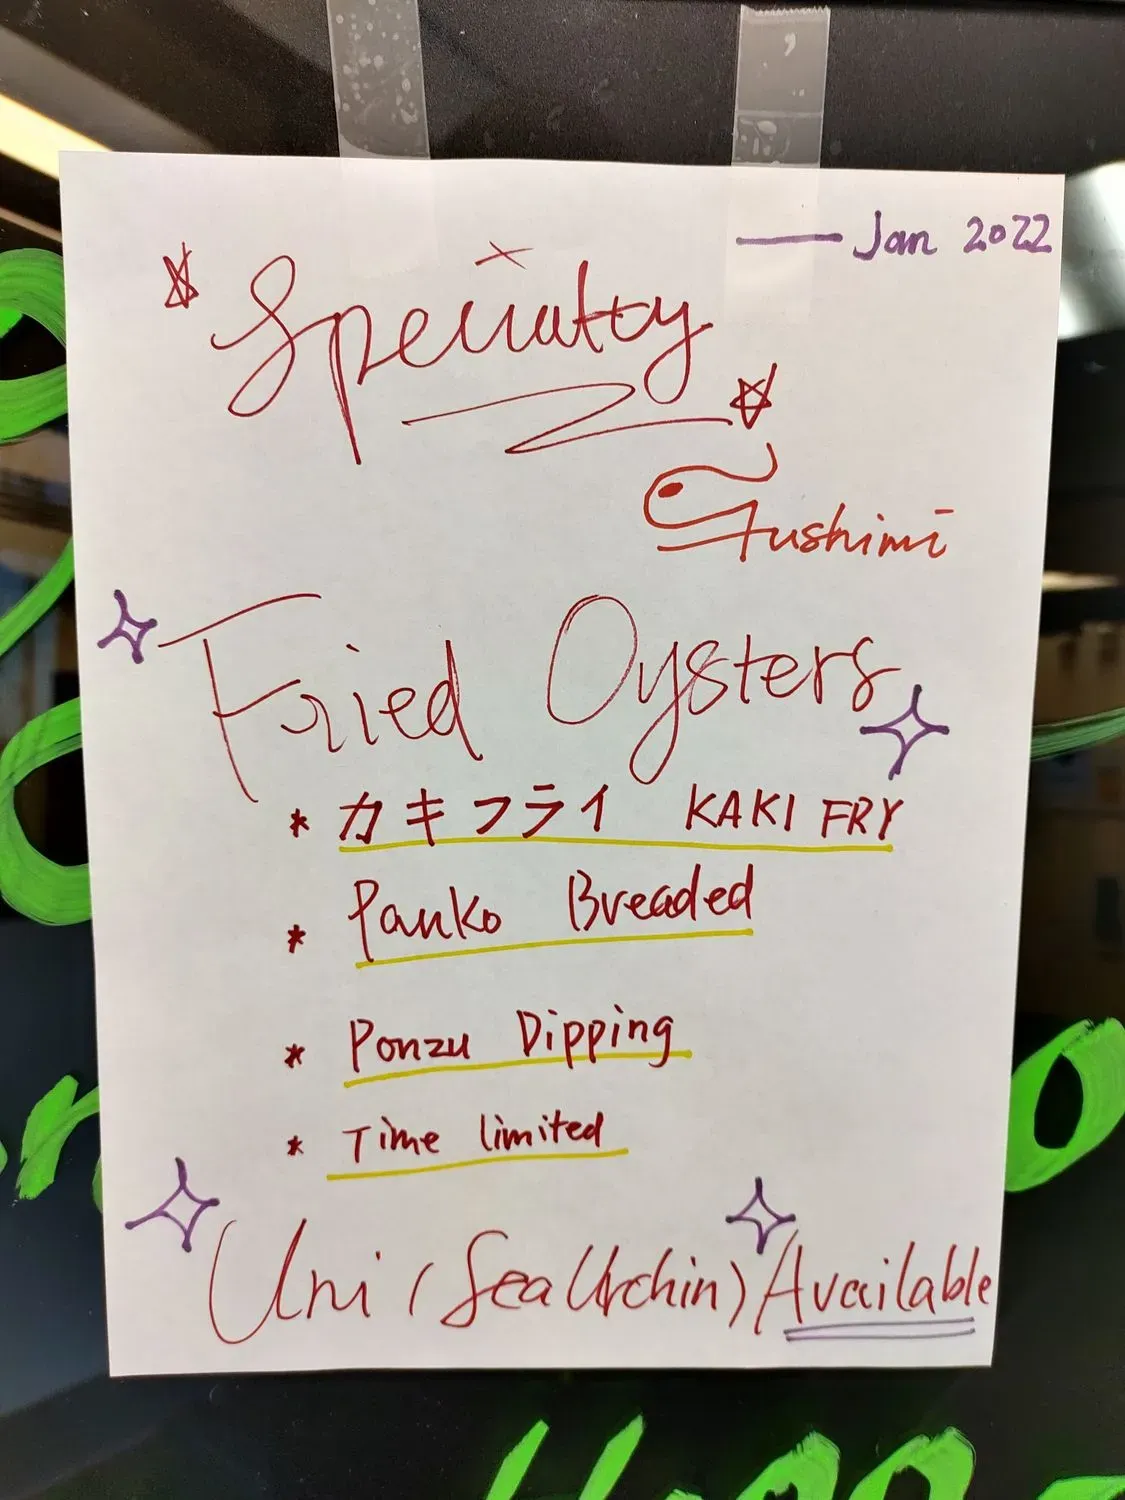 — Jan 2022
Specialty
Fushimi
Fried Oysters
* カキフライ KAKI FRY
* Panko Breaded
* Ponzu Dipping
* Time limited
Uni (Sea Urchin) Available